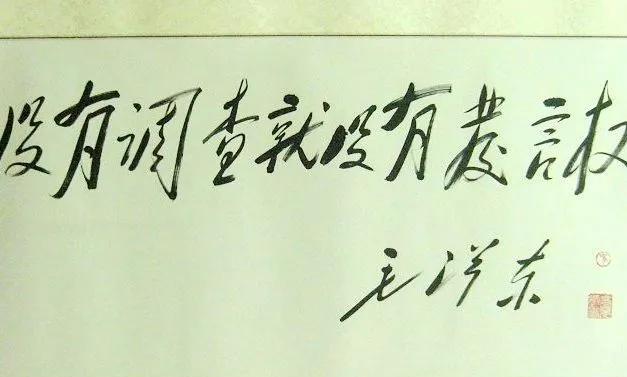 没有调查就没有發言权
毛泽东